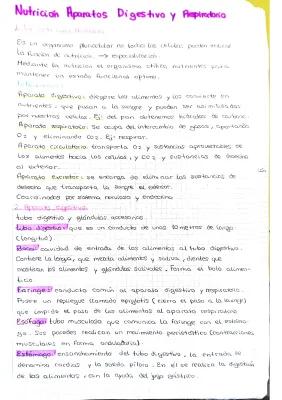 Nutrición Aparatos Digestivo y Respiratorio
Es un organismo pluricelular no todas las células pueden realizar
la función de nutrición → especialización.
Mediante la nutrición el organismo utiliza nutrientes para
mantener un estado funcional óptimo.
Aparato digestivo: digiere los alimentos y los convierte en
nutrientes, que pasan a la sangre y puedan ser asimilados
por nuestras células. Ej: del pan obtenemos hidratos de carbono.
Aparato respiratorio: Se ocupa del intercambio de gases, aportando
O2 y eliminando CO2. Ej: respirar.
Aparato circulatorio: transporta O2 y sustancias aprovechables de
los alimentos hacia las células, y CO2 y sustancias de desecho
al exterior.
Aparato excretor: se encarga de eliminar las sustancias de
desecho que transporta la sangre al exterior.
Coordinados por sistema nervioso y endocrino
2. Aparato digestivo
tubo digestivo y glándulas accesorias.
tubo digestivo: que es un conducto de unos 10 metros de largo
(longitud).
Boca: cavidad de entrada de los alimentos al tubo digestivo.
Contiene la lengua, que mezcla alimentos y saliva, dientes que
mastican los alimentos y glándulas salivales, forma el bolo alimen-
ticio.
Faringe: conducto común al aparato digestivo y respiratorio.
Posee un repliegue llamado epiglotis (cierra el paso a la laringe)
que impide el paso de los alimentos al aparato respiratorio
Esófago: tubo musculado que comunica la faringe con el estóma-
go. Sus paredes realizan un movimiento peristáltico (contracciones
musculares en forma ondulatoria)
Estómago: ensanchamiento del tubo digestivo, la entrada se
denomina cardias y la salida píloro. En él se realiza la digestión
de los alimentos, con la ayuda del jugo gástrico.